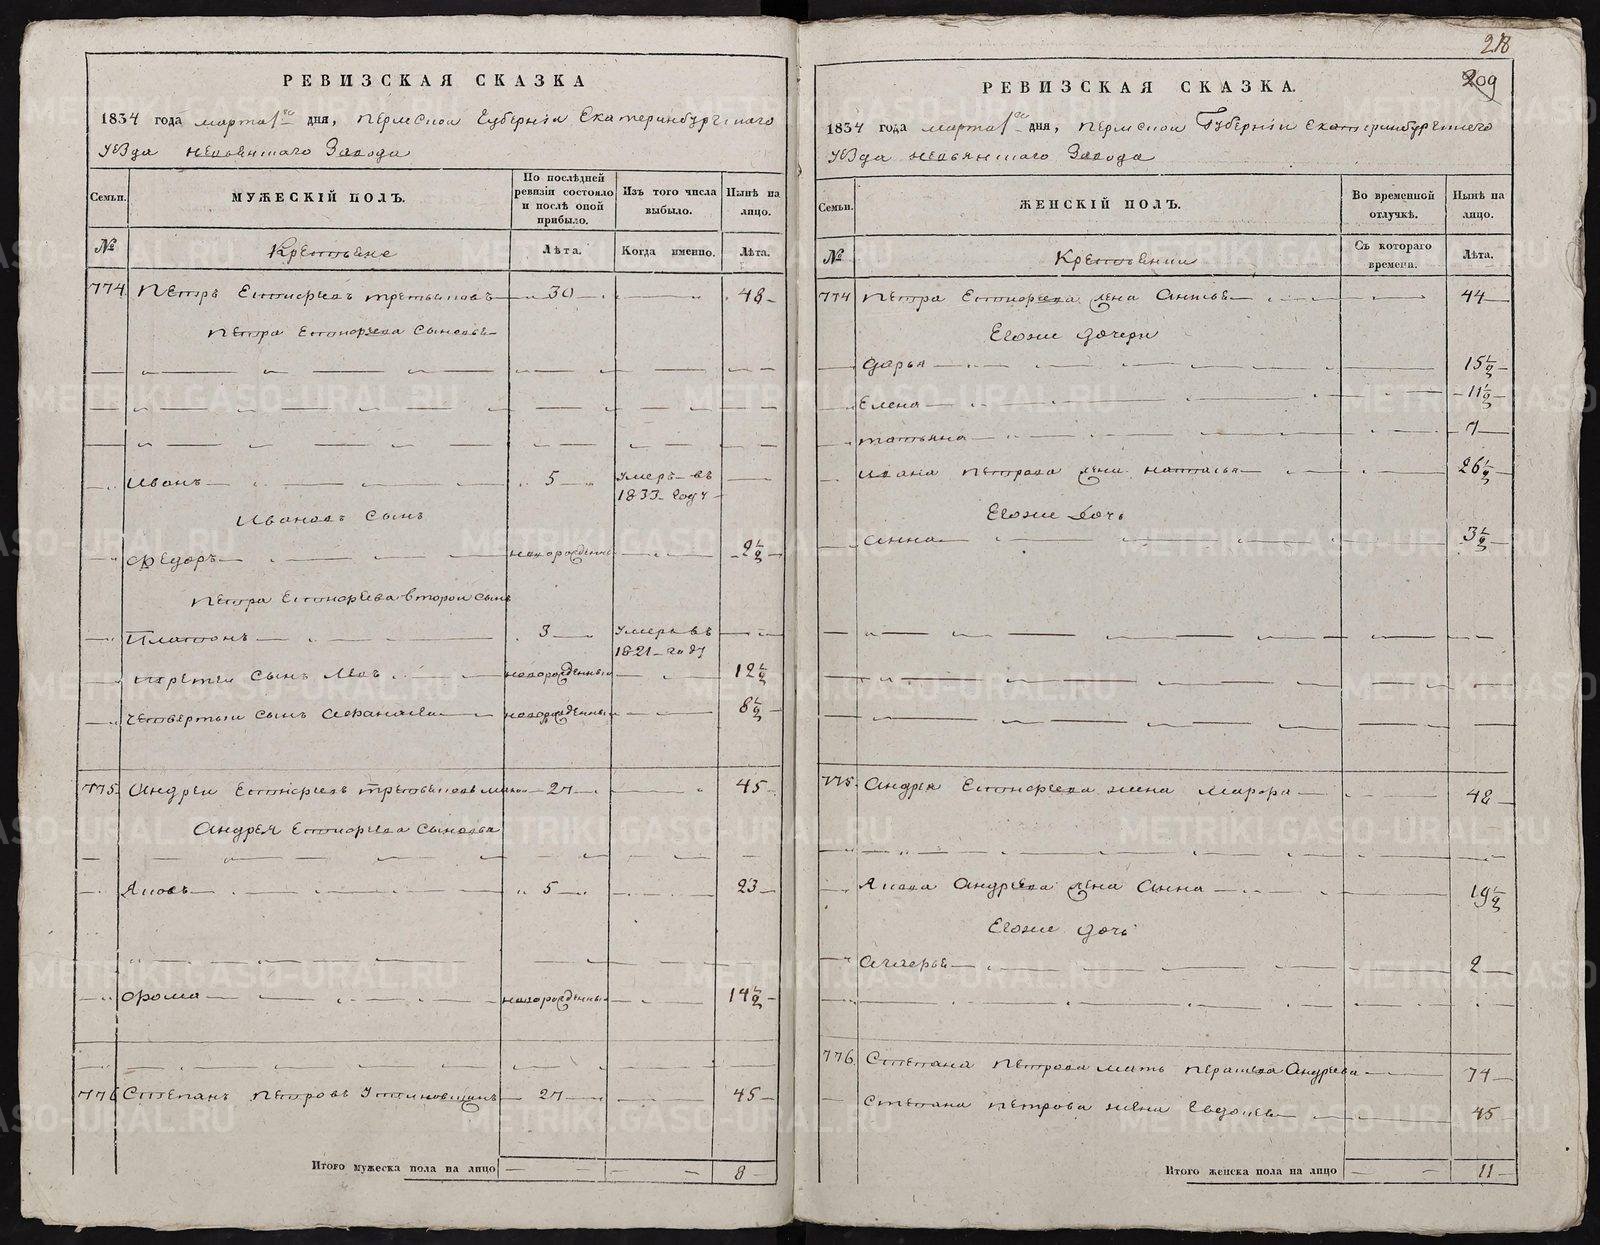 РЕВИЗСКАЯ СКАЗКА
1834 года марта 1го дня, пермской Губерніи Екатеринбургскаго
уѣзда невьянскаго Завода
Семьи. МУЖЕСКІЙ ПОЛЪ. По послѣдней ревизіи состояло и послѣ оной прибыло. Изъ того числа выбыло. Нынѣ на лицо.
№ Крестьяне Лѣта. Когда именно. Лѣта.
774 Петръ Естифѣевъ третьяковъ 30 48
Петра Естифѣева сыновья
Иванъ 5 Умеръ въ 1833 году
Ивановъ сынъ
Федоръ новорожденны 2 1/2
Петра Естифѣева второй сынъ
Платонъ 3 Умеръ въ 1821 году
третей сынъ Левъ новорожденный 12 1/2
четвертый сынъ Афанасей новорожденный 8 1/2
775 Андрей Естифѣевъ третьяковъ 27 45
Андрея Естифѣева сыновья
Яковъ 5 23
Фома новорожденны 14 1/2
776 Степанъ Петровъ 27 45
Итого мужеска пола на лицо 8
218
209
РЕВИЗСКАЯ СКАЗКА.
1834 года марта 1го дня, пермской Губерніи екатеринбургскаго
уѣзда невьянскаго Завода
Семьи. ЖЕНСКІЙ ПОЛЪ. Во временной отлучкѣ. Нынѣ на лицо.
№ Крестьянки Съ котораго времена. Лѣта.
774 Петра Естифѣева жена Анисья 44
Егоже дочери
Дарья 15 1/2
Елена 11 1/2
татьяна 7
Ивана петрова жена наталья 26 1/2
Егоже дочь
Анна 3 1/2
775 Андрея Естифѣева жена Марфа 48
Якова Андрѣева жена Анна 19 1/2
Егоже дочь
Агафья 2
776 Степана петрова мать Андрѣева 74
Степана петрова жена Евдокея 45
Итого женска пола на лицо 11
METRIKI.GASO-URAL.RU